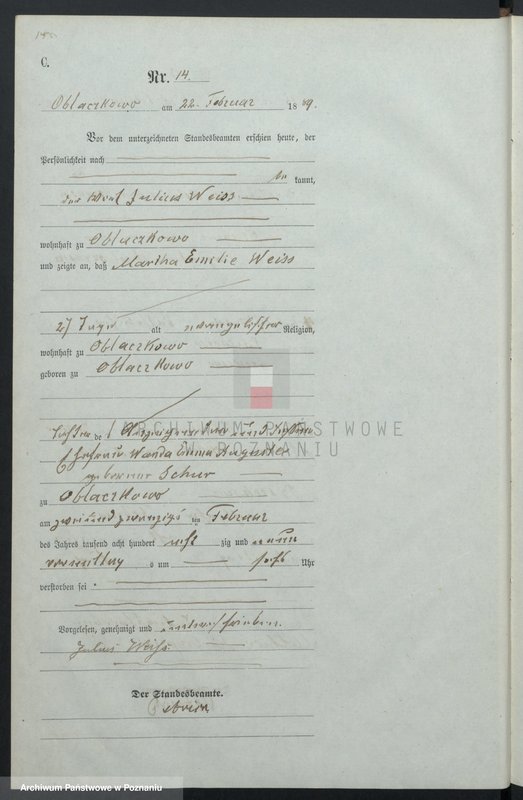 C.
Nr. 14.
Oblaczkowo am 22. Februar 1889.
Vor dem unterzeichneten Standesbeamten erschien heute, der
Persönlichkeit nach
be kannt,
der Wirt Julius Weiss
wohnhaft zu Oblaczkowo
und zeigte an, daß Martha Emilie Weiss
27 Tage alt evangelischer Religion,
wohnhaft zu Oblaczkowo
geboren zu Oblaczkowo
Tochter des Anzeigenden und dessen
Ehefrau Wanda Emma Auguste
geborener Schur
zu Oblaczkowo
am zweiundzwanzigsten Februar
des Jahres tausend acht hundert acht zig und neun
vormittags um sechs Uhr
verstorben sei
Vorgelesen, genehmigt und unterschrieben.
Julius Weiß
Der Standesbeamte.
ARCHIWUM PAŃSTWOWE
W POZNANIU
Archiwum Państwowe w Poznaniu